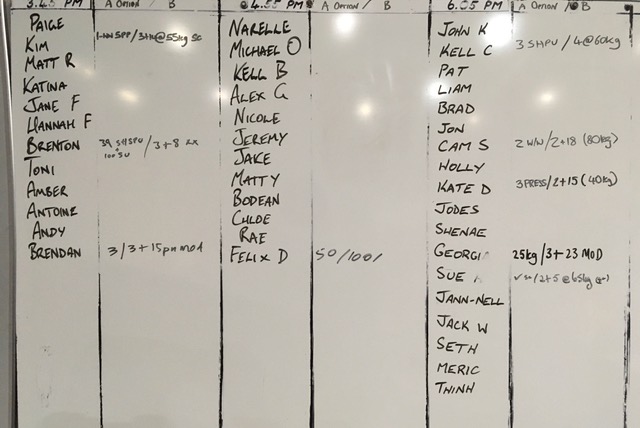 A OPTION / B
4.55 PM
A OPTION / B
A OPTION / B
PAIGE
KIM
MATT R
KATINA
JANE F
HANNAH F
BRENTON
+8 RX
TONI
AMBER
ANTOINE
ANDY
BRENDAN 3/3+15 MOD
NARELLE
MICHAEL O
KELL B
ALEX G
NICOLE
JEREMY
JAKE
MATTY
BODEAN
CHLOE
RAE
FELIX D 50/100/
JOHN K
KELL C 3 SHPU / 4@60kg
PAT
LIAM
BRAD
JON
CAM S 2 W/W/2+18 (80kg)
HOLLY
KATE D 3 PRESS/2+15 (40kg)
JODES
SHENAE
GEORGI 25kg/3+23 MOD
SUE /2+5 @65kg
JANN-NELL
JACK W
SETH
MERIC
THINH